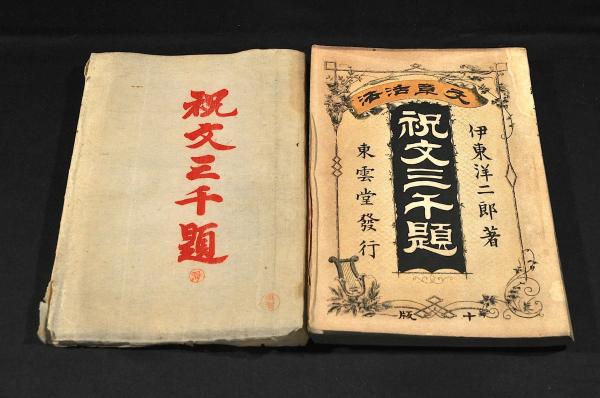 祝文三千題
文章活法
伊東洋二郎著
祝文三千題
東雲堂發行
十版